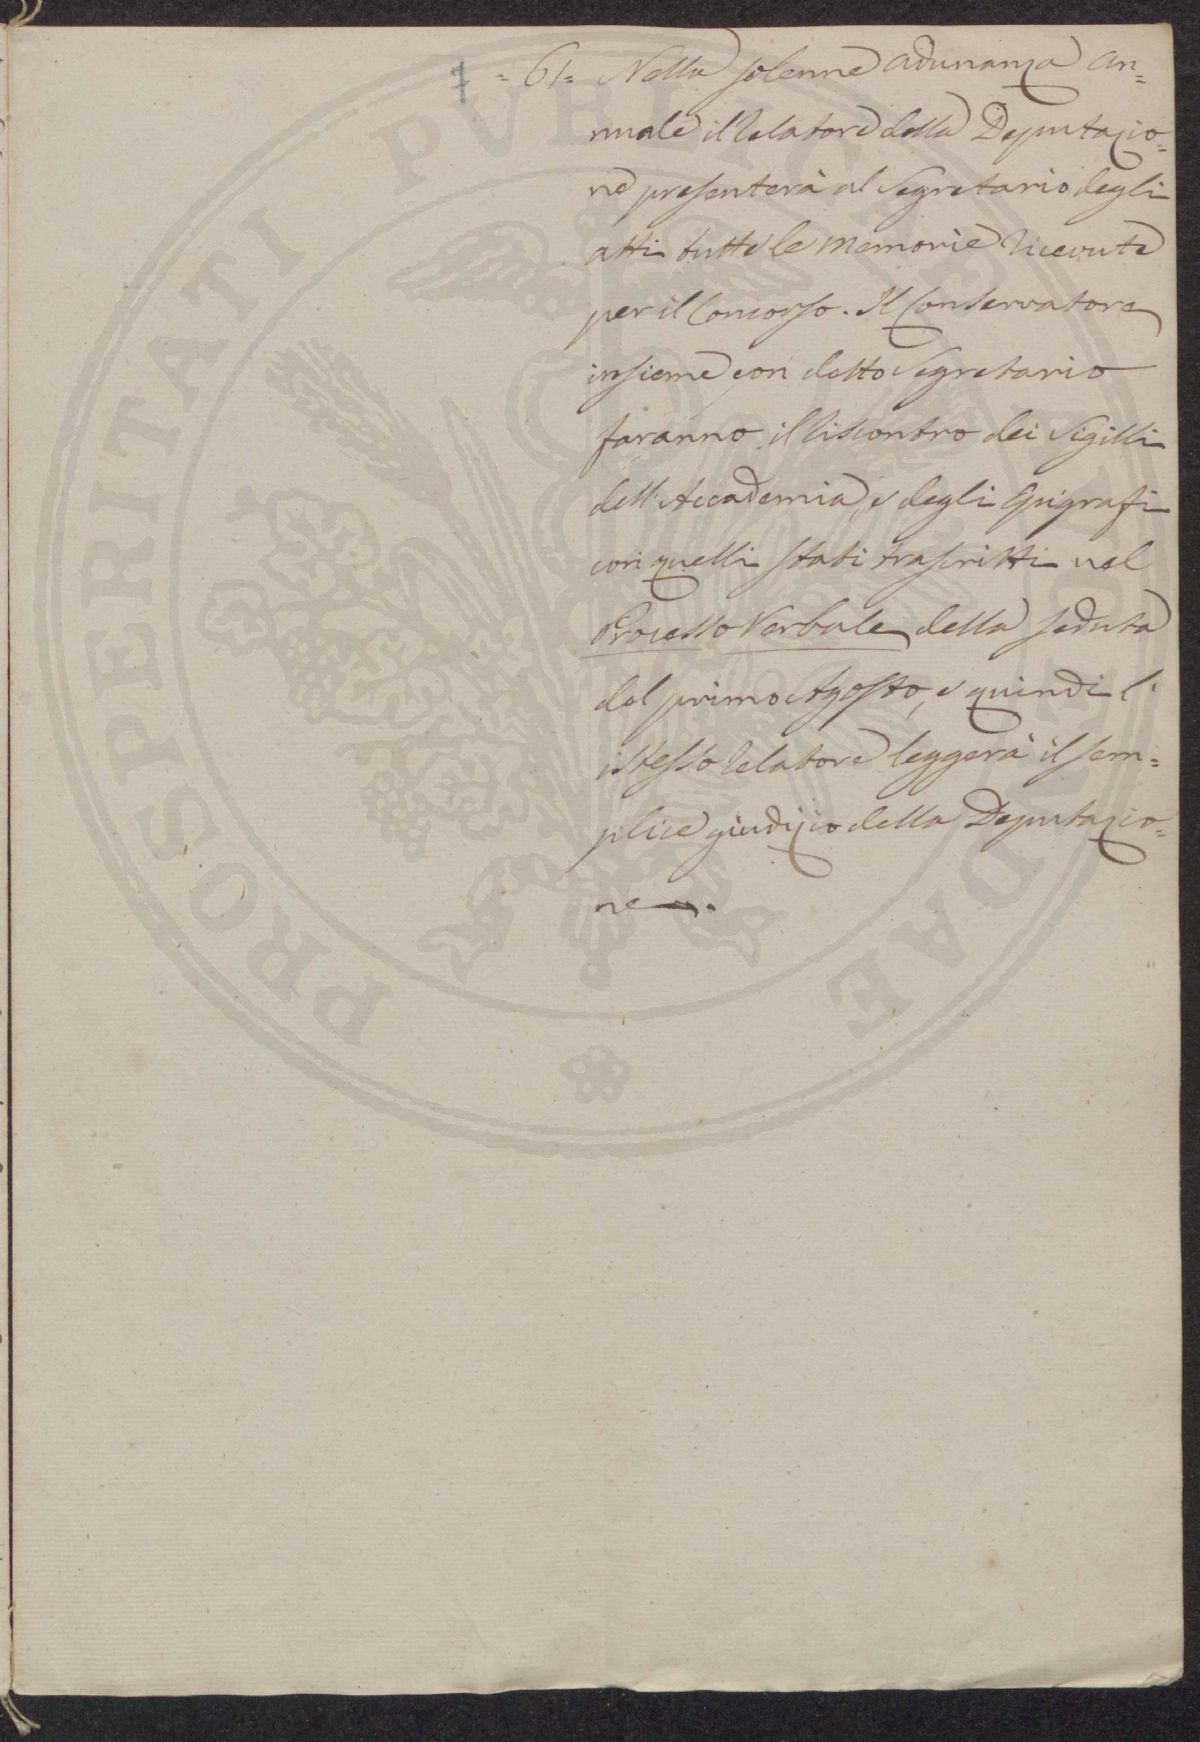 =61= Nella solenne adunanza an=
nuale il Relatore della Deputazio=
ne presenterà al Segretario degli
atti tutte le memorie ricevute
per il Concorso. Il Conservatore
insieme con detto Segretario
faranno il riscontro dei Sigilli
dell'Accademia, e degli Epigrafi
con quelli stati trascritti nel
Processo Verbale della seduta
del primo Agosto, e quindi l'
istesso Relatore leggerà il sem=
plice giudizio della Deputazio=
ne.
PROSPERITATI PVBLICAE ADAVGENDAE